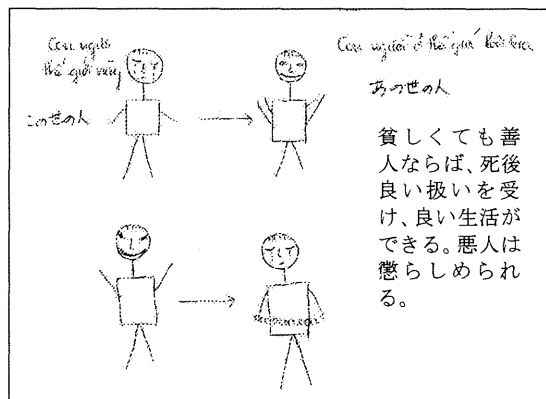 Con người
thế giới này
Con người ở thế giới bên kia
この世の人
あの世の人
貧しくても善
人ならば、死後
良い扱いを受
け、良い生活が
できる。悪人は
懲らしめられ
る。